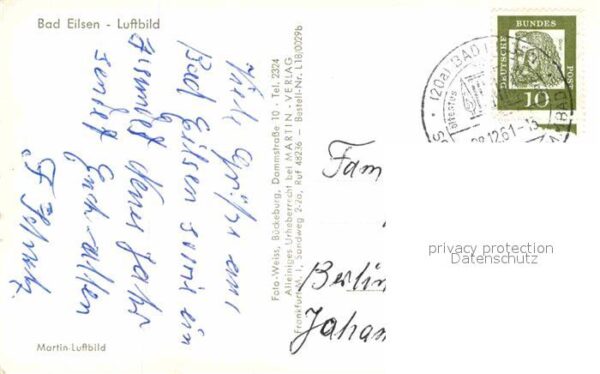 Bad Eilsen - Luftbild
Viele Grüße aus
Bad Eilsen sowie ein
gesundes neues Jahr
sendet Euch allen
Martin-Luftbild
Foto-Weiss, Bückeburg, Dammstraße 10 · Tel. 2324
Alleiniges Urheberrecht bei MARTIN-VERLAG
Frankfurt M. 1, Sandweg 2-2a, Ruf 48236 - Bestell-Nr. L18/0029b
DEUTSCHE
BUNDES
POST
10
(20a) BAD
12.61
Fam
Berlin
Johan
privacy protection
Datenschutz